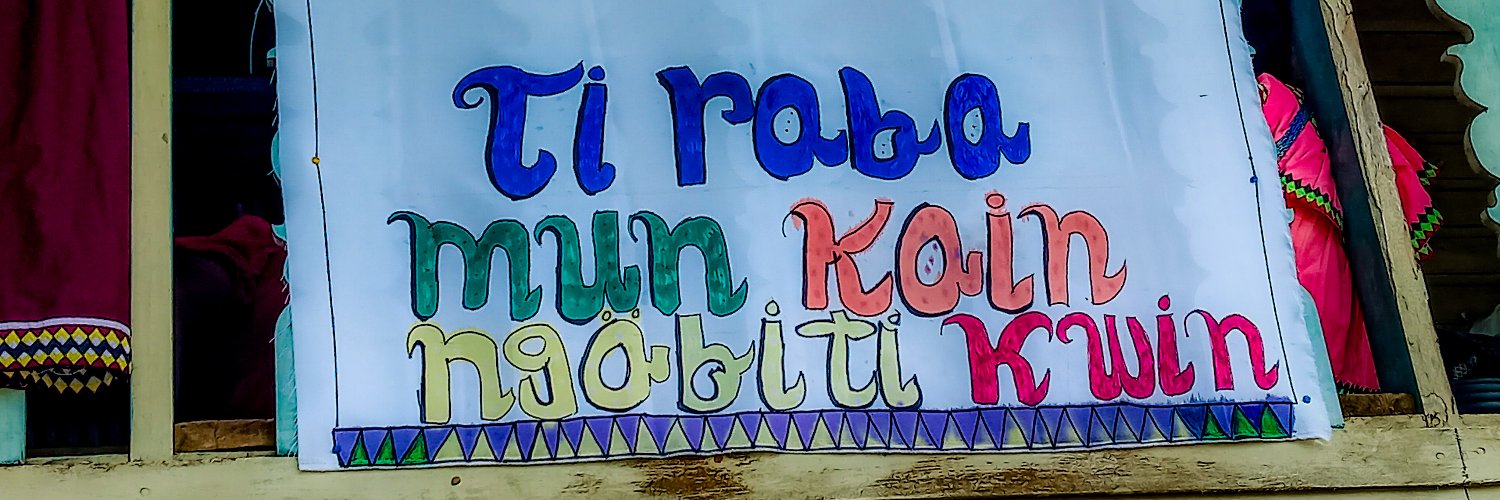 Ti raba
mun kain
ngäbiti kwin